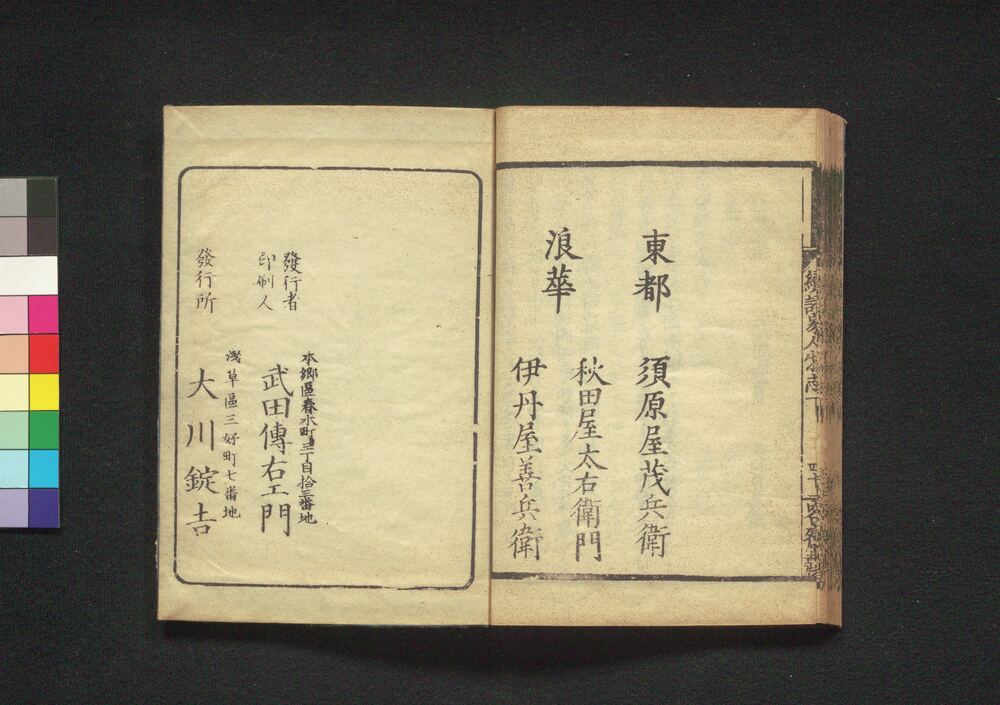 東都
須原屋茂兵衛
浪華
秋田屋太右衛門
伊丹屋善兵衛
本郷區春木町三丁目拾三番地
發行者
印刷人
武田傳右エ門
淺草區三好町七番地
發行所
大川錠吉